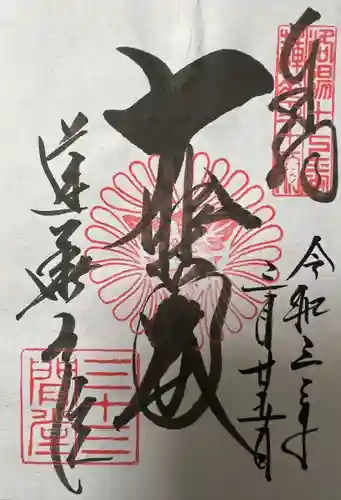 奉拝
洛陽十七番
大悲殿
蓮華王院
三十三
間堂
令和三年
三月廿五日